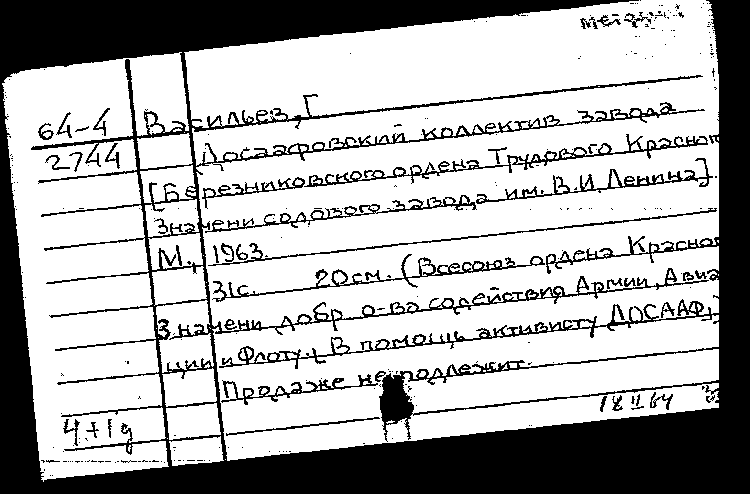 64-4 Васильев, Г
2744 Досаафовский коллектив завода
[Березниковского ордена Трудового Красног
Знамени содового завода им. В.И. Ленина].
М., 1963.
31с. 20см. (Всесоюз ордена Красног
Знамени добр о-ва содействия Армии, Авиа
ции и Флоту. [В помощь активисту ДОСААФ])
Продаже не подлежит.
4+1д
18 II 64